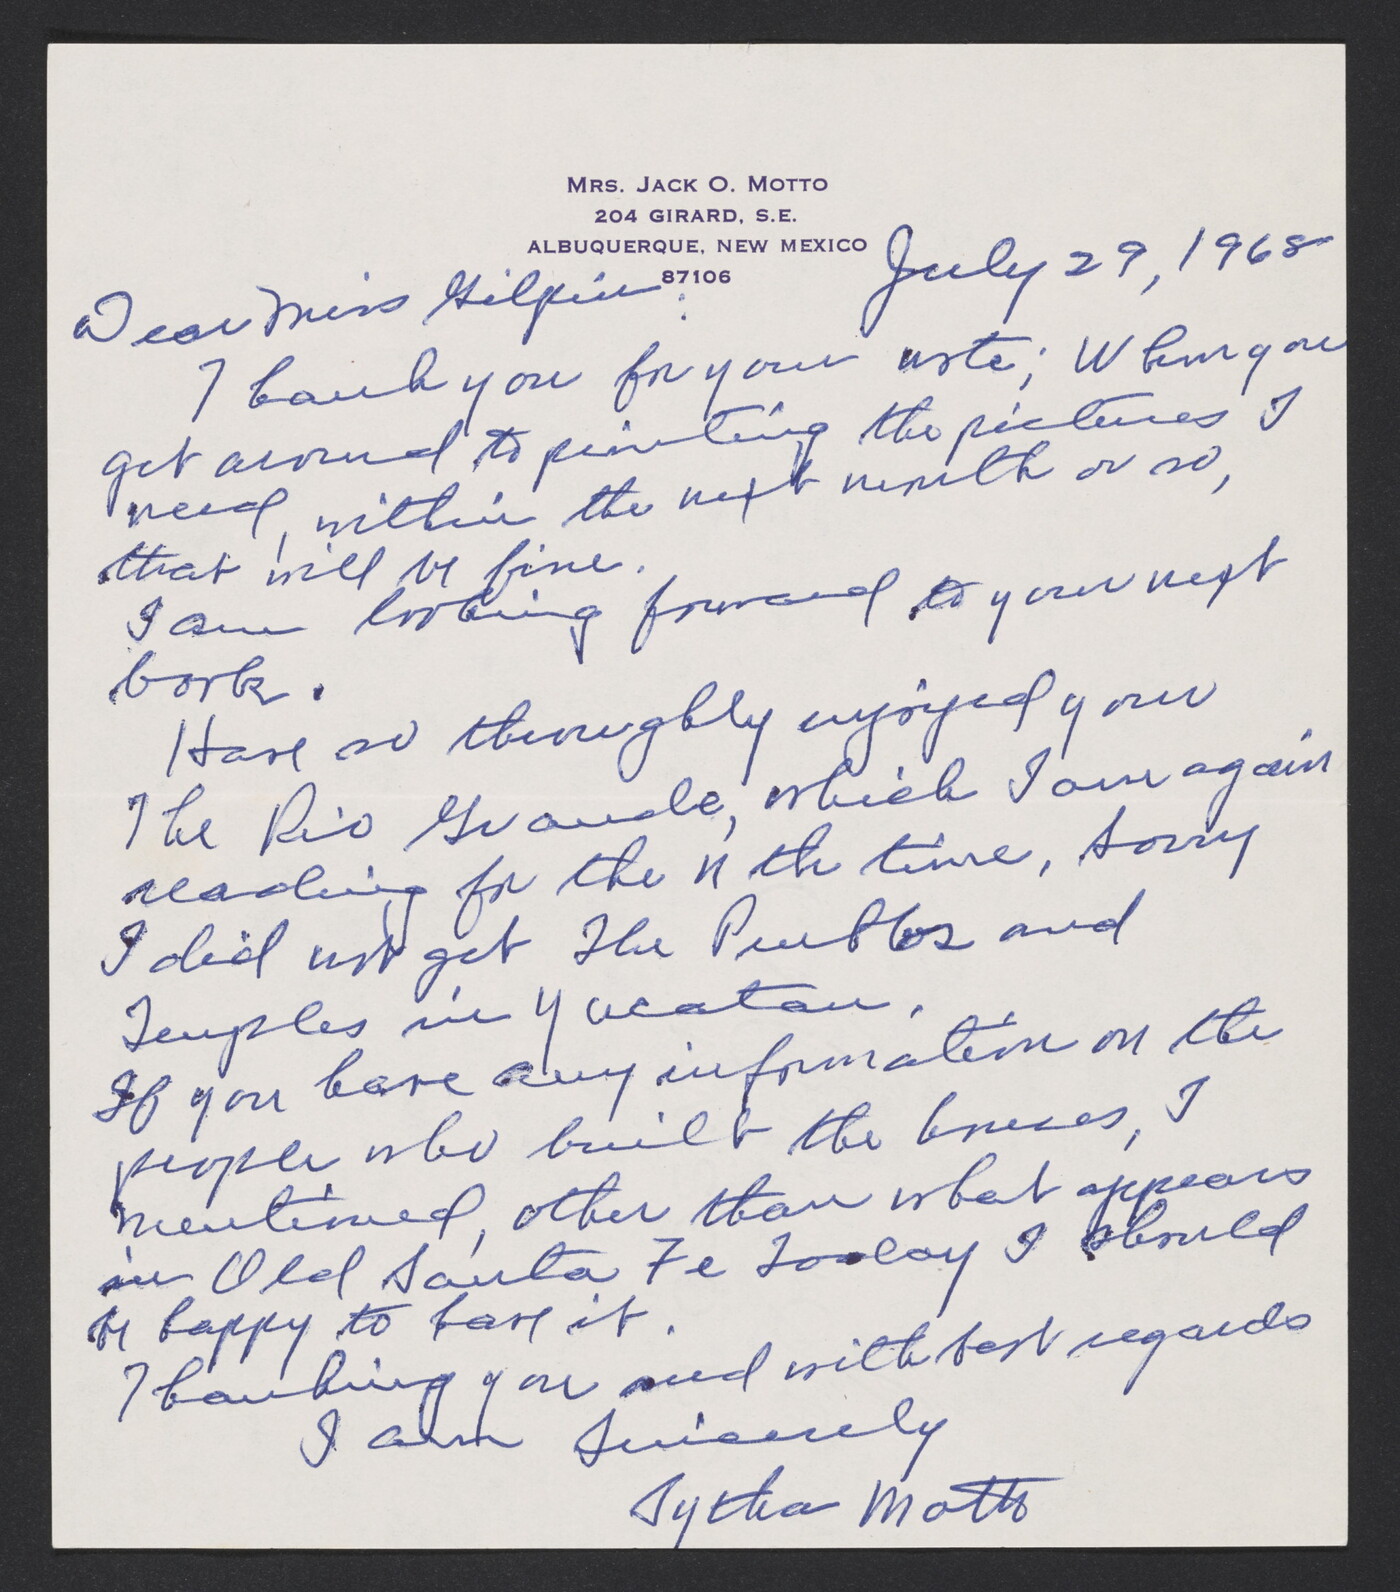 MRS. JACK O. MOTTO
204 GIRARD, S.E.
ALBUQUERQUE, NEW MEXICO
87106
July 29, 1968
Dear Miss Gilpin:
Thank you for your note; When you
get around to printing the pictures I
need, within the next month or so,
that will be fine.
I am looking forward to your next
book.
Have so thoroughly enjoyed your
The Rio Grande, which I am again
reading for the nth time, Sorry
I did not get The Pueblos and
Temples in Yucatan.
If you have any information on the
people who built the houses, I
mentioned, other than what appears
in Old Santa Fe Today I should
be happy to have it.
Thanking you and with best regards
I am Sincerely
Sytha Motto